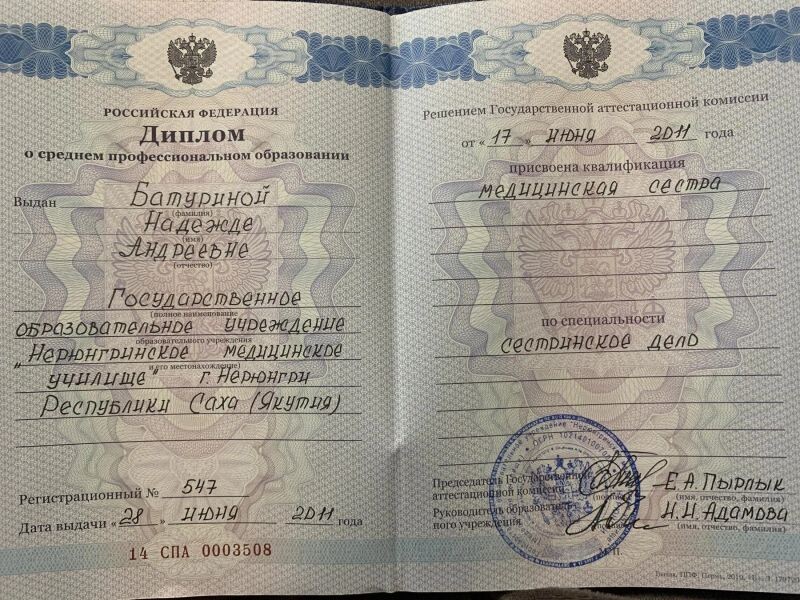 РОССИЙСКАЯ ФЕДЕРАЦИЯ
Диплом
о среднем профессиональном образовании
Выдан Батуриной
(фамилия)
Надежде
(имя)
Андреевне
(отчество)
Государственное
(полное наименование
образовательное учреждение
образовательного учреждения
"Нерюнгринское медицинское
и его местонахождение)
училище" г. Нерюнгри
Республики Саха (Якутия)
Регистрационный № 547
Дата выдачи «28» июня 2011 года
14 СПА 0003508
Решением Государственной аттестационной комиссии
от «17» июня 2011 года
присвоена квалификация
медицинская сестра
по специальности
сестринское дело
Председатель Государственной
аттестационной комиссии Е.А. Пырлык
(подпись) (имя, отчество, фамилия)
Руководитель образователь-
ного учреждения Н.И. Адамова
(имя, отчество, фамилия)
М.П.